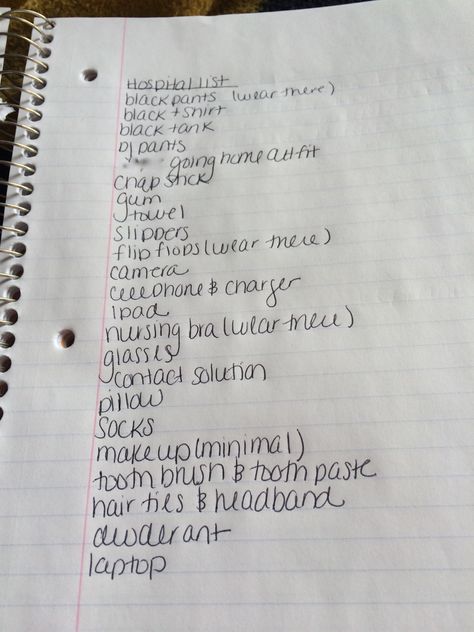 Hospital list
black pants (wear there)
black t shirt
black tank
pj pants
going home outfit
chap stick
gum
towel
slippers
flip flops (wear there)
camera
cell phone & charger
ipad
nursing bra (wear there)
glasses
contact solution
pillow
socks
makeup (minimal)
tooth brush & tooth paste
hair ties & headband
dewderant
laptop